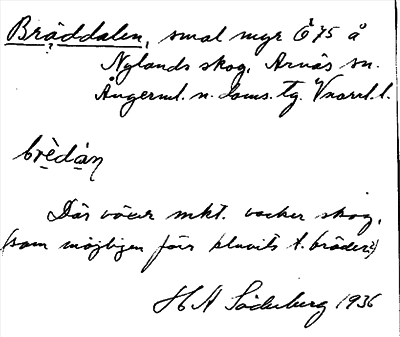 Bräddalen, smal myr Ö 75 å
Nylands skog, Arnäs sn.
Ångerml. n. doms. tg. Vnorrl. l.
brèdàn
Där växer mkt. vacker skog,
(som möjligen förr kluvits t. bräder?)
H A Söderberg 1936